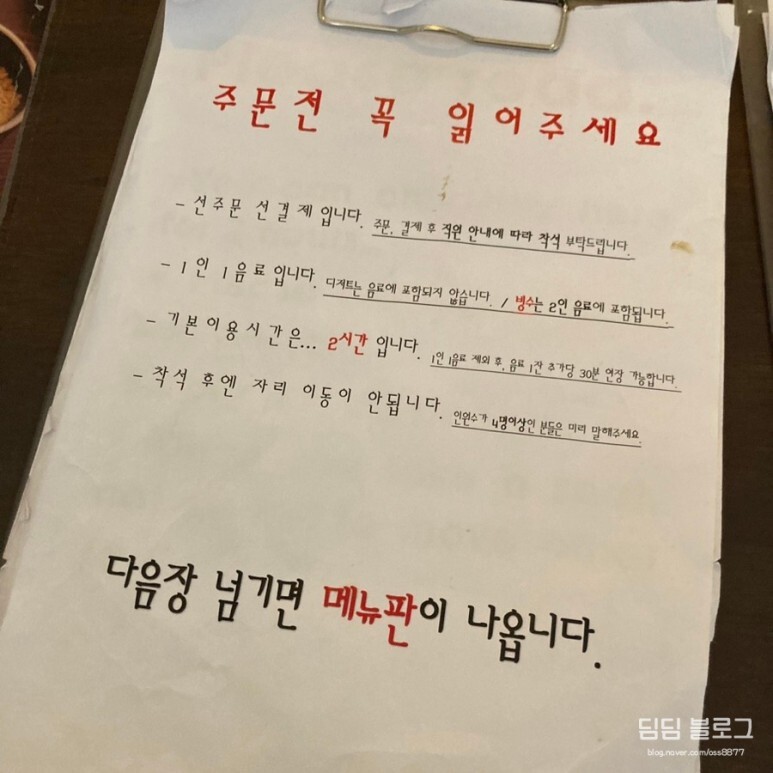 주문전 꼭 읽어주세요
- 선주문 선결제 입니다. 주문, 결제 후 직원 안내에 따라 착석 부탁드립니다.
- 1인 1음료입니다. 디저트는 음료에 포함되지 않습니다. / 빙수는 2인 음료에 포함됩니다.
- 기본이용시간은... 2시간 입니다. 1인 1음료 제외 후, 음료 1잔 추가당 30분 연장 가능합니다.
- 착석 후엔 자리 이동이 안됩니다. 인원수가 4명이상인 분들은 미리 말해주세요.
다음장 넘기면 메뉴판이 나옵니다.
딤딤 블로그
blog.naver.com/oss8877